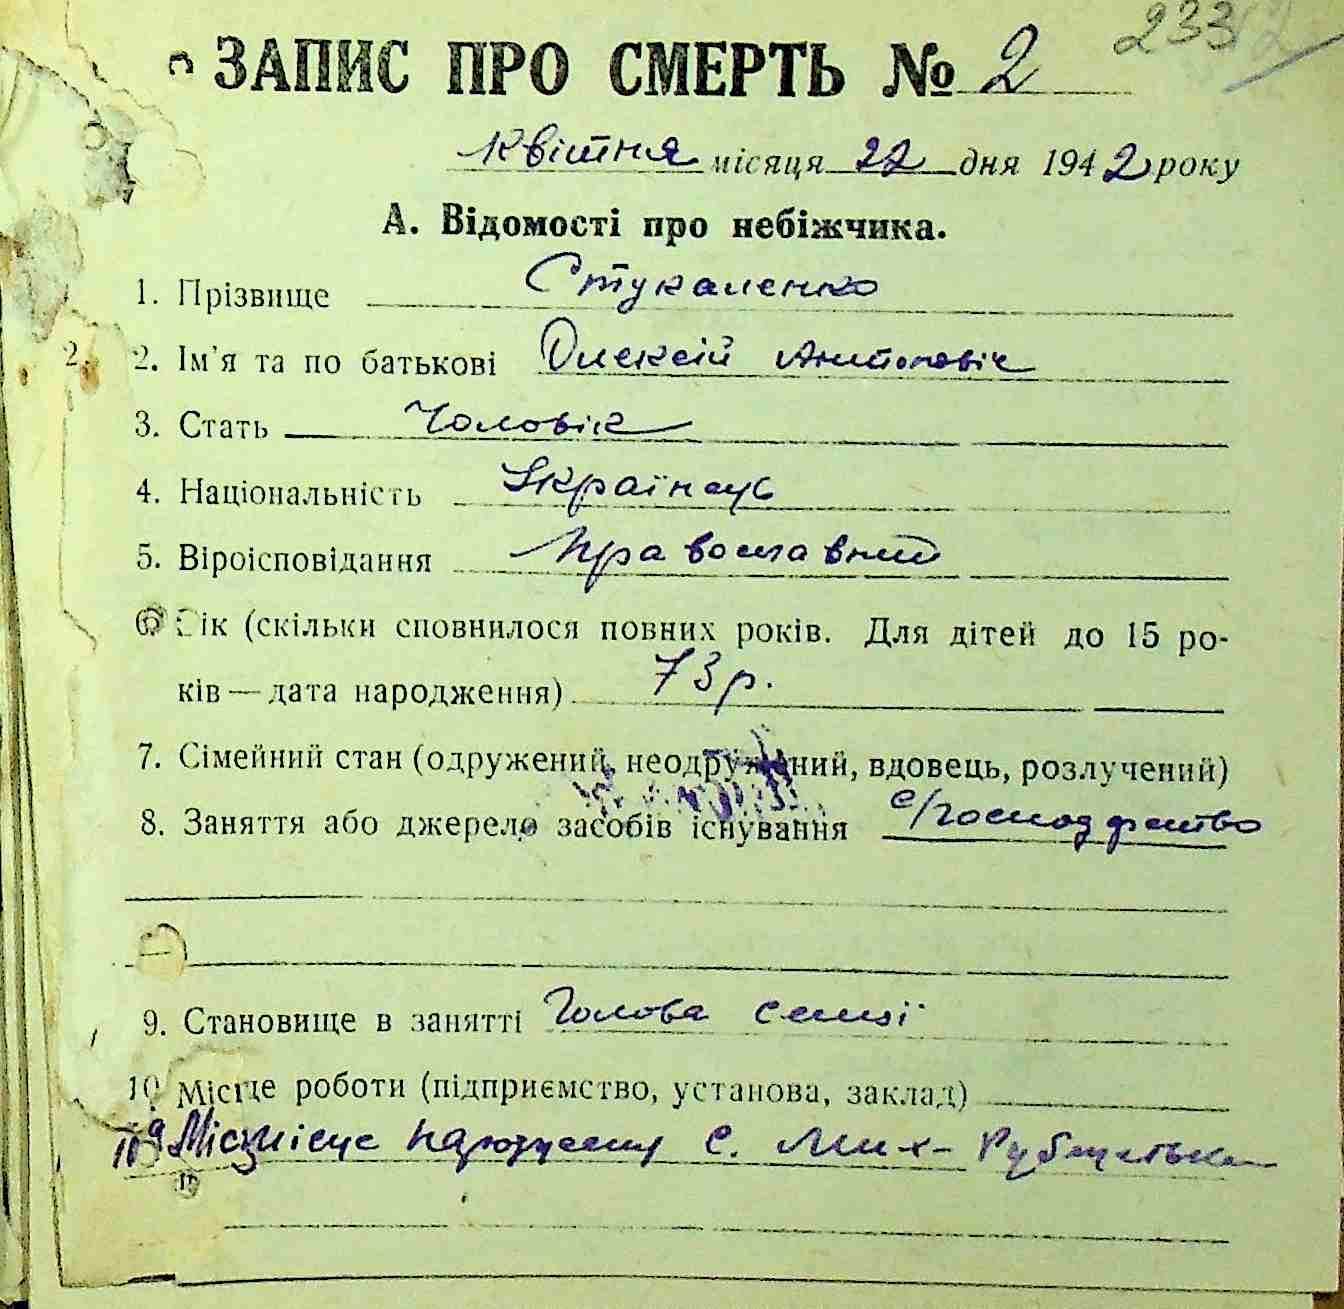 233
ЗАПИС ПРО СМЕРТЬ № 2
Квітня місяця 22 дня 1942 року
А. Відомості про небіжчика.
1. Прізвище Стукаленко
2. Ім'я та по батькові Олексій Антоновіч
3. Стать Чоловік
4. Національність Українець
5. Віроісповідання православний
6. Вік (скільки сповнилося повних років. Для дітей до 15 ро-
ків — дата народження) 73 р.
7. Сімейний стан (одружений, неодружений, вдовець, розлучений)
8. Заняття або джерело засобів існування с/господарство
9. Становище в занятті Голова семії
10. Місце роботи (підприємство, установа, заклад)
с. Мих-